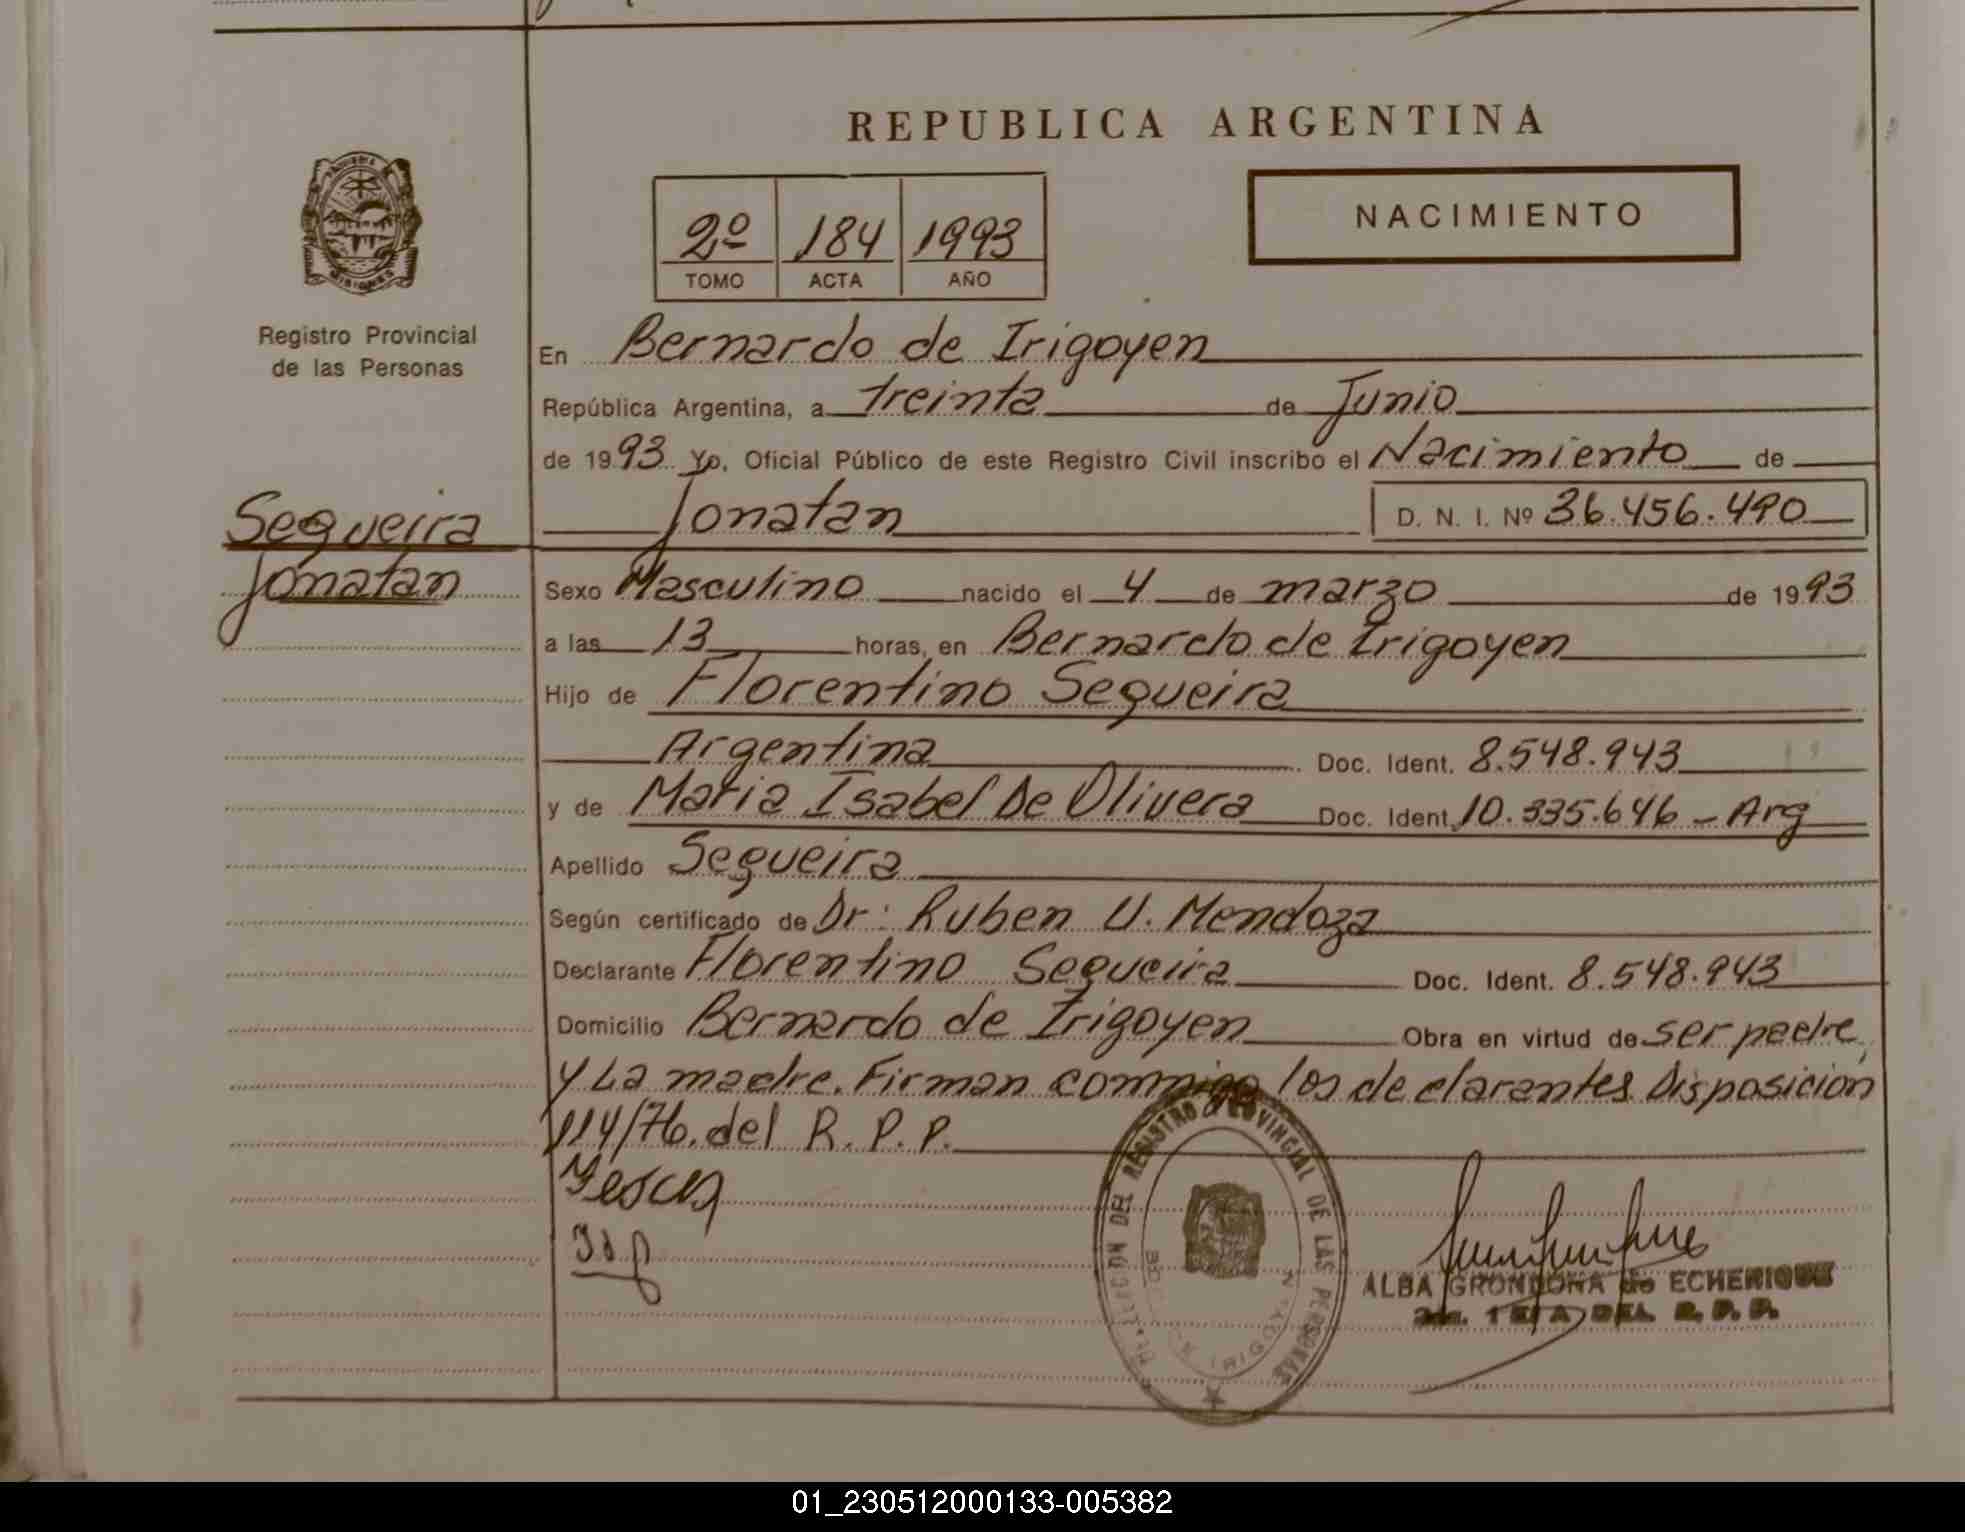 REPUBLICA ARGENTINA
NACIMIENTO
2º 184 1993
TOMO ACTA AÑO
Registro Provincial
de las Personas
En Bernardo de Irigoyen
República Argentina, a treinta de Junio
de 1993 Yo, Oficial Público de este Registro Civil inscribo el Nacimiento de
Jonatan D. N. I. Nº 36.456.490
Sequeira
Jonatan
Sexo Masculino nacido el 4 de marzo de 1993
a las 13 horas, en Bernardo de Irigoyen
Hijo de Florentino Sequeira
Argentina Doc. Ident. 8.548.943
y de Maria Isabel De Olivera Doc. Ident. 10.335.646 - Arg
Apellido Sequeira
Según certificado de Dr: Ruben U. Mendoza
Declarante Florentino Sequeira Doc. Ident. 8.548.943
Domicilio Bernardo de Irigoyen Obra en virtud de ser padre,
y La madre. Firman commigo los declarantes Disposicion
114/76. del R. P. P.
DEL REGISTRO PROVINCIAL DE LAS PERSONAS
IRIGOYEN
ALBA GRONDONA de ECHENIQUE
DEL R. P. P.
01_230512000133-005382